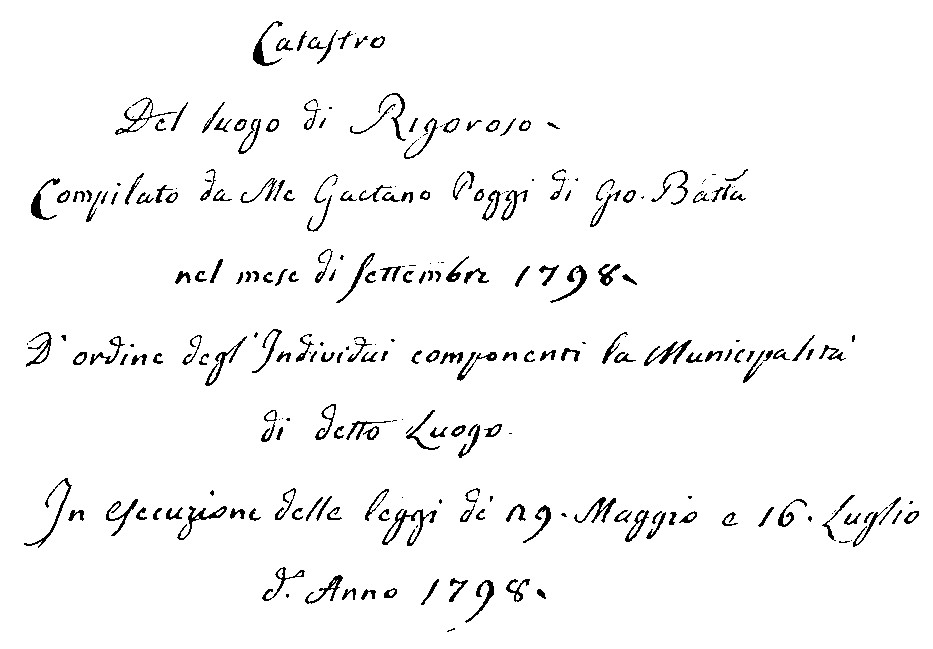 Catastro
Del luogo di Rigoroso
Compilato da Me Gaetano Poggi di Gio. Batta
nel mese di settembre 1798
D'ordine degl'Individui componenti la Municipalità
di detto Luogo.
In esecuzione delle leggi de' 29. Maggio e 16. Luglio
d.º Anno 1798